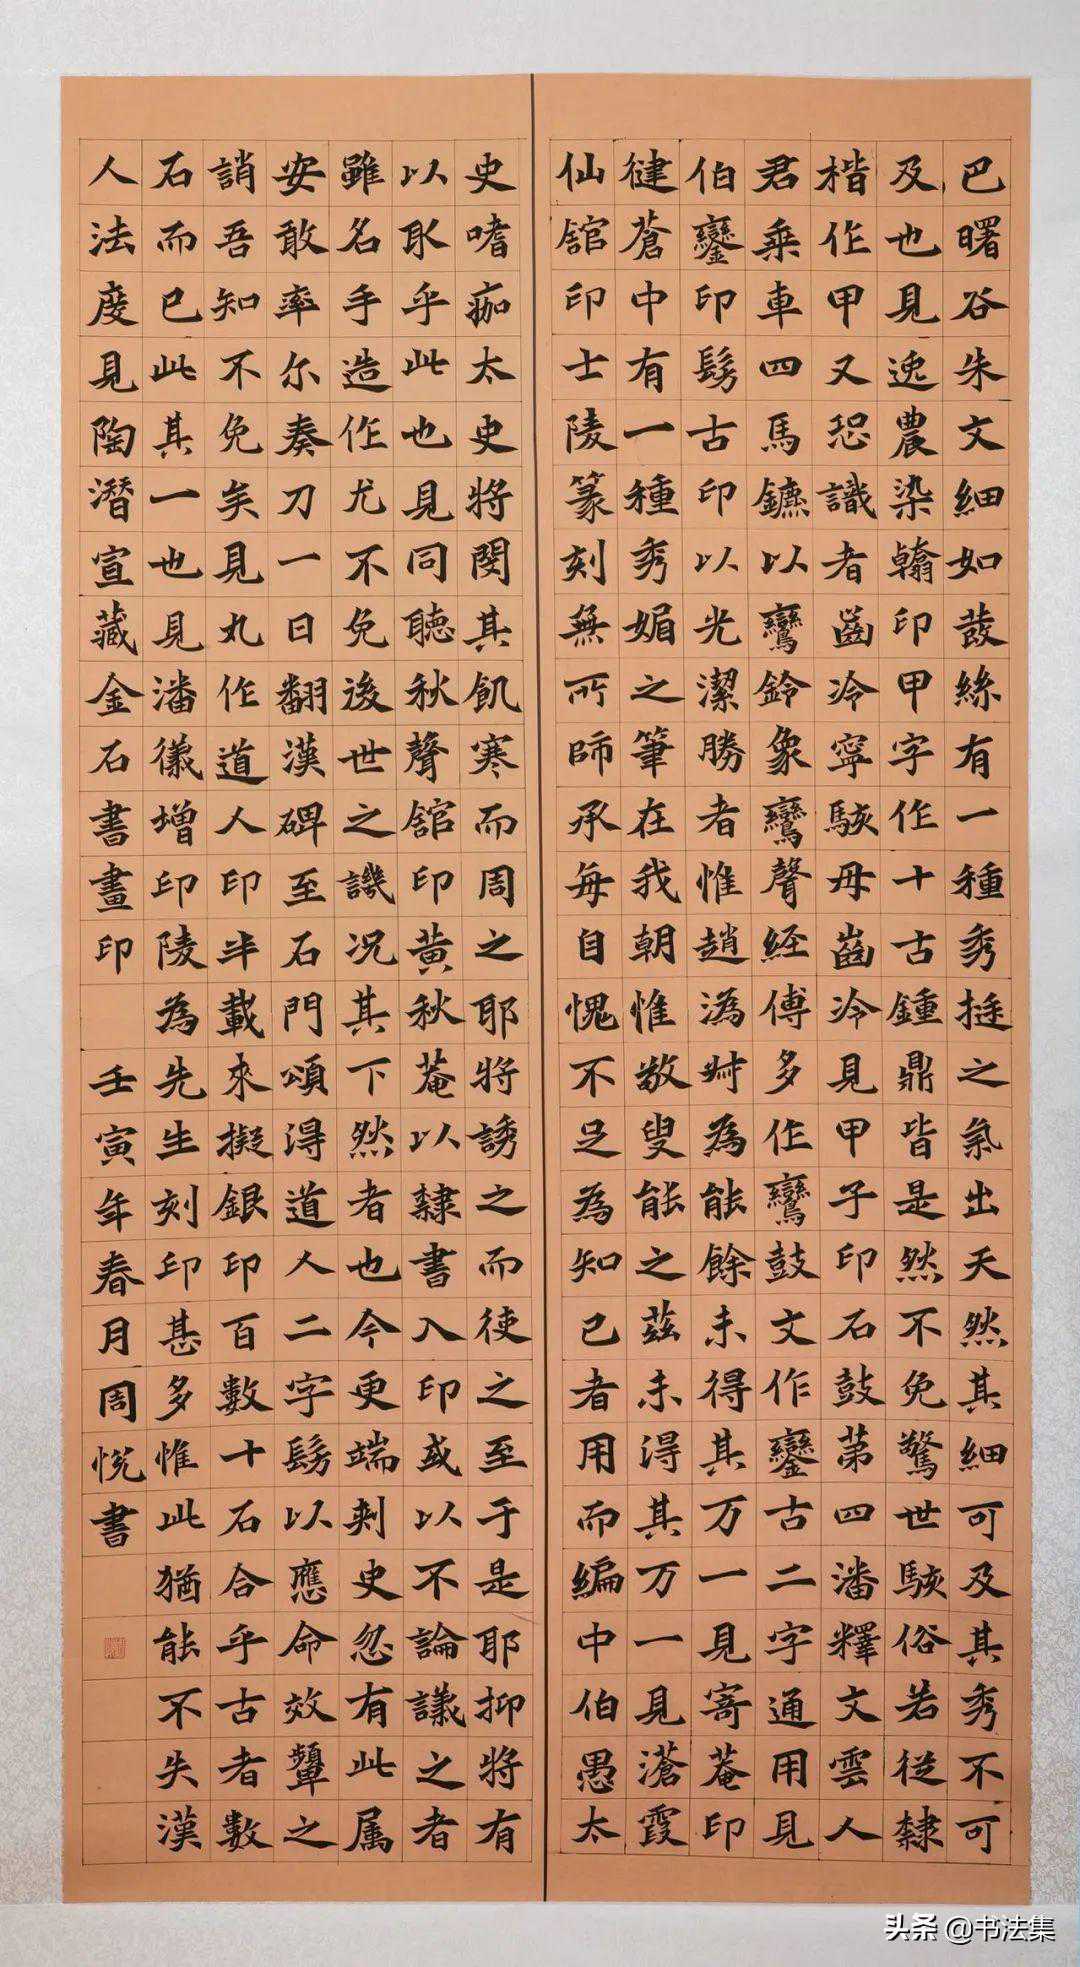 巴曙谷朱文細如髮絲有一種秀挺之氣出天然其細可及其秀不可
及也見逸農染翰印甲字作十古鍾鼎皆是然不免驚世駭俗若從隸
楷作甲又恐識者齒冷寧駭毋齒冷見甲子印石鼓第四潘釋文雲人
君乘車四馬鑣以鸞鈴象鸞聲経傅多作鸞鼓文作鑾古二字通用見
伯鑾印髣古印以光潔勝者惟趙溈尗為能餘未得其万一見寄菴印
徤蒼中有一種秀媚之筆在我朝惟敬叟能之茲未淂其万一見滄霞
仙舘印士陵篆刻無所師承每自愧不足為知已者用而編中伯愚太
史嗜痂太史將閔其飢寒而周之耶將誘之而使之至于是耶抑將有
以取乎此也見同聽秋聲舘印黃秋菴以隸書入印或以不論議之者
雖名手造作尤不免後世之譏况其下然者也今更端刺史忽有此属
安敢率尔奏刀一日翻漢碑至石門頌淂道人二字髣以應命效顰之
誚吾知不免矣見丸作道人印半載來擬銀印百數十石合乎古者數
石而已此其一也見潘儀增印陵為先生刻印甚多惟此猶能不失漢
人法度見陶潛宣藏金石書畫印 壬寅年春月周悅書
头条 @书法集